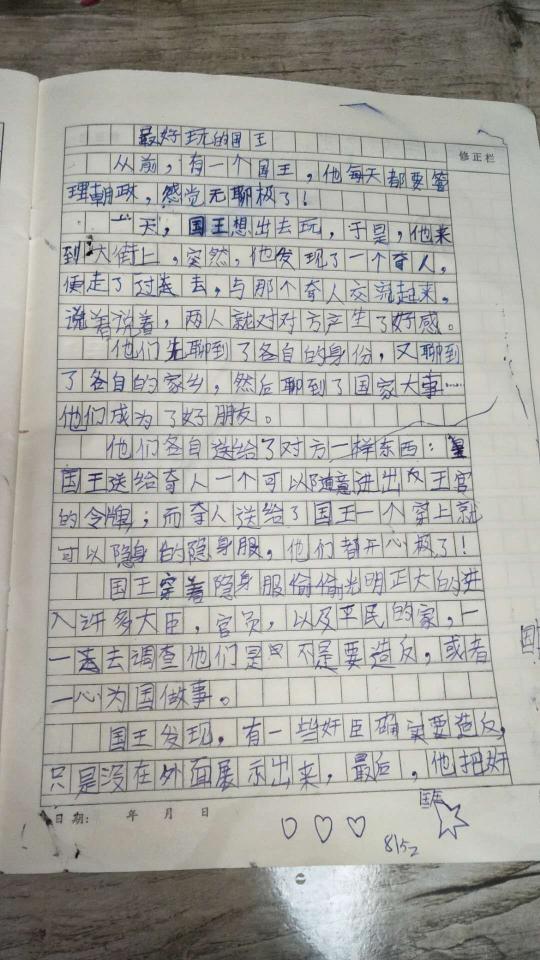 最好玩的国王
修正栏
从前，有一个国王，他每天都要管
理朝政，感觉无聊极了！
一天，国王想出去玩，于是，他来
到大街上，突然，他发现了一个奇人，
便走了过去，与那个奇人交流起来。
说着说着，两人就对对方产生了好感。
他们先聊到了各自的身份，又聊到
了各自的家乡，然后聊到了国家大事……
他们成为了好朋友。
他们各自送给了对方一样东西：
国王送给奇人一个可以随意进出王宫
的令牌；而奇人送给了国王一个穿上就
可以隐身的隐身服，他们都开心极了！
国王穿着隐身服偷偷光明正大的进
入许多大臣，官员，以及平民的家，一
一去调查他们是不是要造反，或者
一心为国做事。
国王发现，有一些奸臣确实要造反，
只是没在外面展示出来，最后，他把奸
日期： 年 月 日